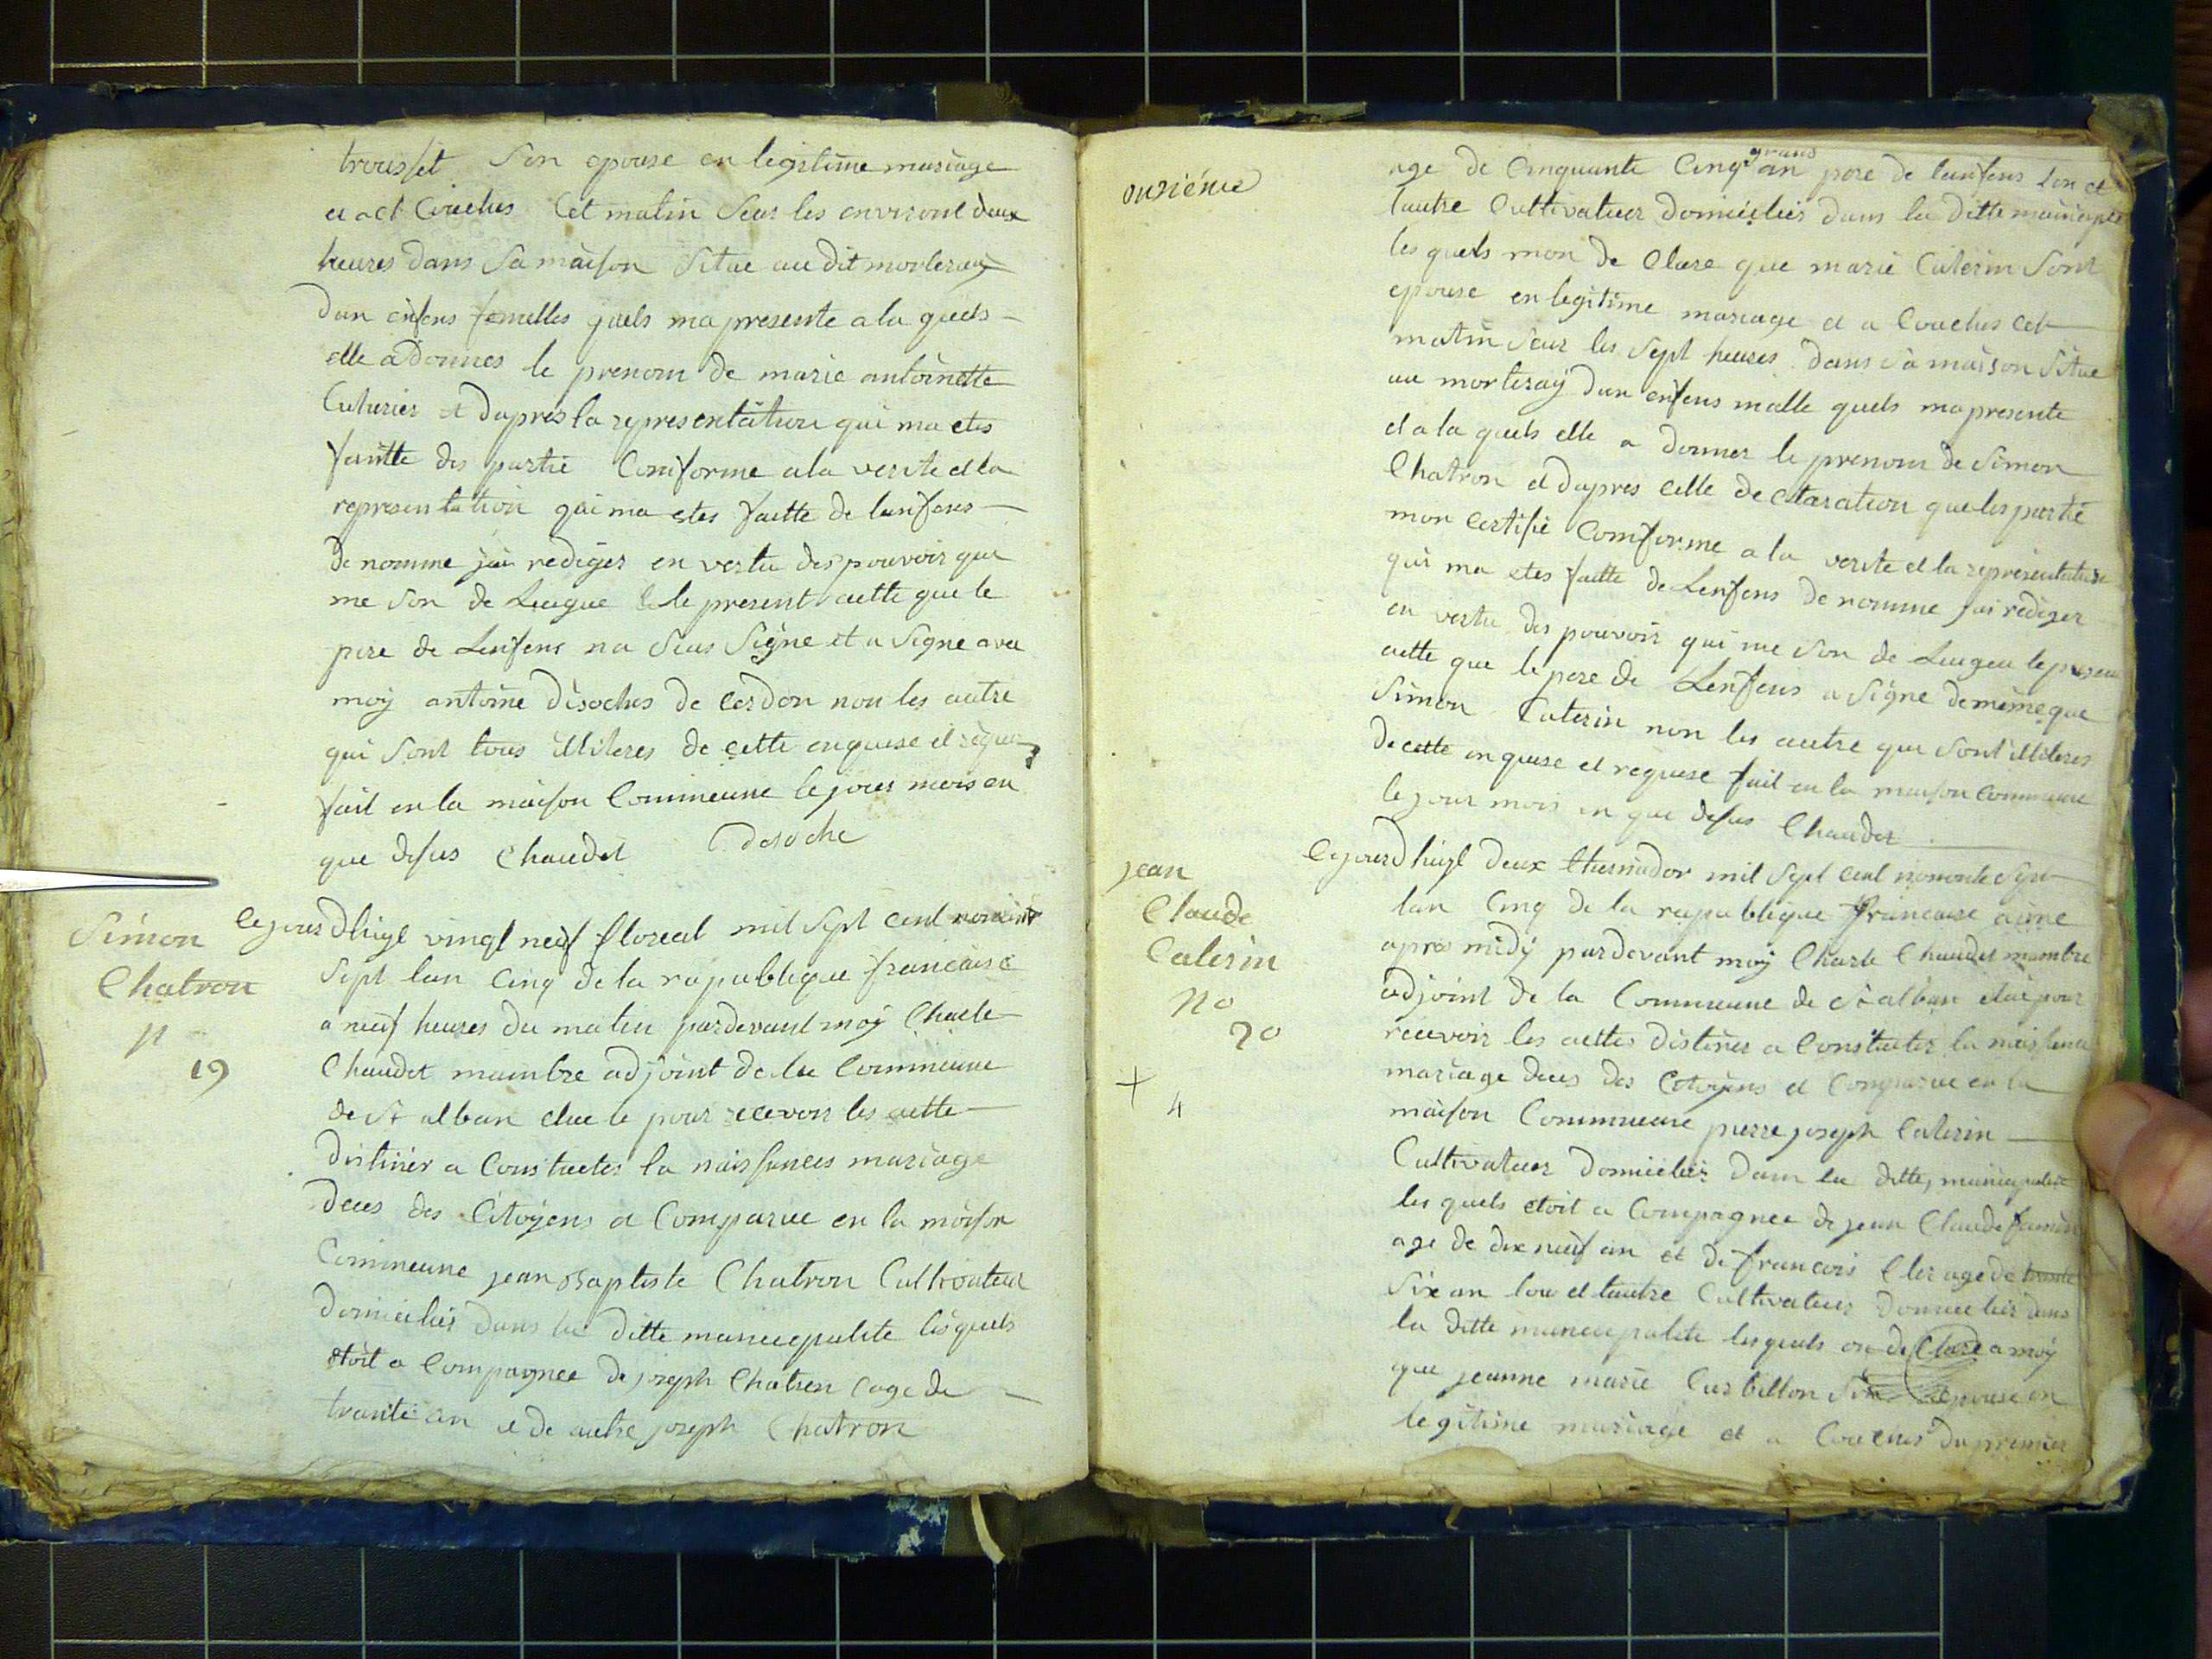 trousset Son epouse en legitime mariage
et act Couches Cet matin Seur les environt deux
heures dans Sa maison Situe au dit morteray
Dun enfens femelles quels ma presente a la quels
elle a donnes le prenom de marie antoinette
Cuterier et dapres la representation qui ma etes
faitte des partie Conforme a la verite et la
representation qui ma etes faitte de lenfens
de nomme jai rediges en vertu des pouvoir que
me Son de Leugue le present actte que le
pere de Lenfens na Seus Signe et a Signe avec
moy antoine desoches de Cerdon non les autre
qui Sont tous illiteres de cette enquise et requis
fait en la maison Commeune le jour mois en
que desus Chaudet Desoche
Simon
Chatron
n
19
Cejourdhuyt vingt neuf floreal mil Sept cent
Sept lan Cinq de la republique francaise
a neuf heures du matin pardevant moy Charle
Chaudet mambre adjoint de la Commeune
de St alban elue le pour recevoir les actte
distiner a Constactes la naissances mariage
deces des Citoyens et Comparue en la maison
Commeune jean Baptiste Chatron Cultivateur
Domicelies dans la ditte manecepalite lesquels
etoit a Compagnee de joseph Chatron age de
trante an et de autre joseph Chatron
onsiéme
age de Cinquante Cinq an grand pere de lenfens Lon et
lautre Cultivateur Domicelies dans la ditte
les quels mon de Clare que marie Caterin Sont
epouse en legitime mariage et a Couches cet
matin Seur les Sept heures dans Sa maison Situe
au morteray dun enfens malle quels ma presente
et a la quels elle a donner le prenom de Simon
Chatron et dapres celle de Claration que les partie
mon certifie Comforme a la verite et la representation
qui ma etes faitte de Lenfens de nomme jai rediger
en vertu des pouvoir qui me Son de Leugeu le present
actte que le pere de Lenfens a Signe de meme que
Simon Caterin non les autre que Sont illiteres
de cette enquise et requise fait en la maison Commeune
le jour mois en que desus Chaudet
jean
Claude
Caterin
no
20
+ 4
Cejourdhuyt deux thermidor mil Sept cent nonente Sept
lan Cinq de la republique francaise a une
apres midy pardevant moy Charle Chaudet mambre
adjoint de la Commeune de St alban elue pour
recevoir les acttes distiner a Constacter la naissence
mariage deces des Citoyens et Comparue en la
maison Commeune pierre joseph Caterin
Cultivateur Domicelies dans la ditte municipalite
les quels etoit a Compagnee de jean Claude
age de dix neuf an et de francois Cler age de trante
Six an lon et lautre Cultivateur Domicelies dans
la ditte manecepalite lesquels on de Clare a moy
que jeanne marie Curbillon Son epouse en
legitime mariage et a Couches du premier